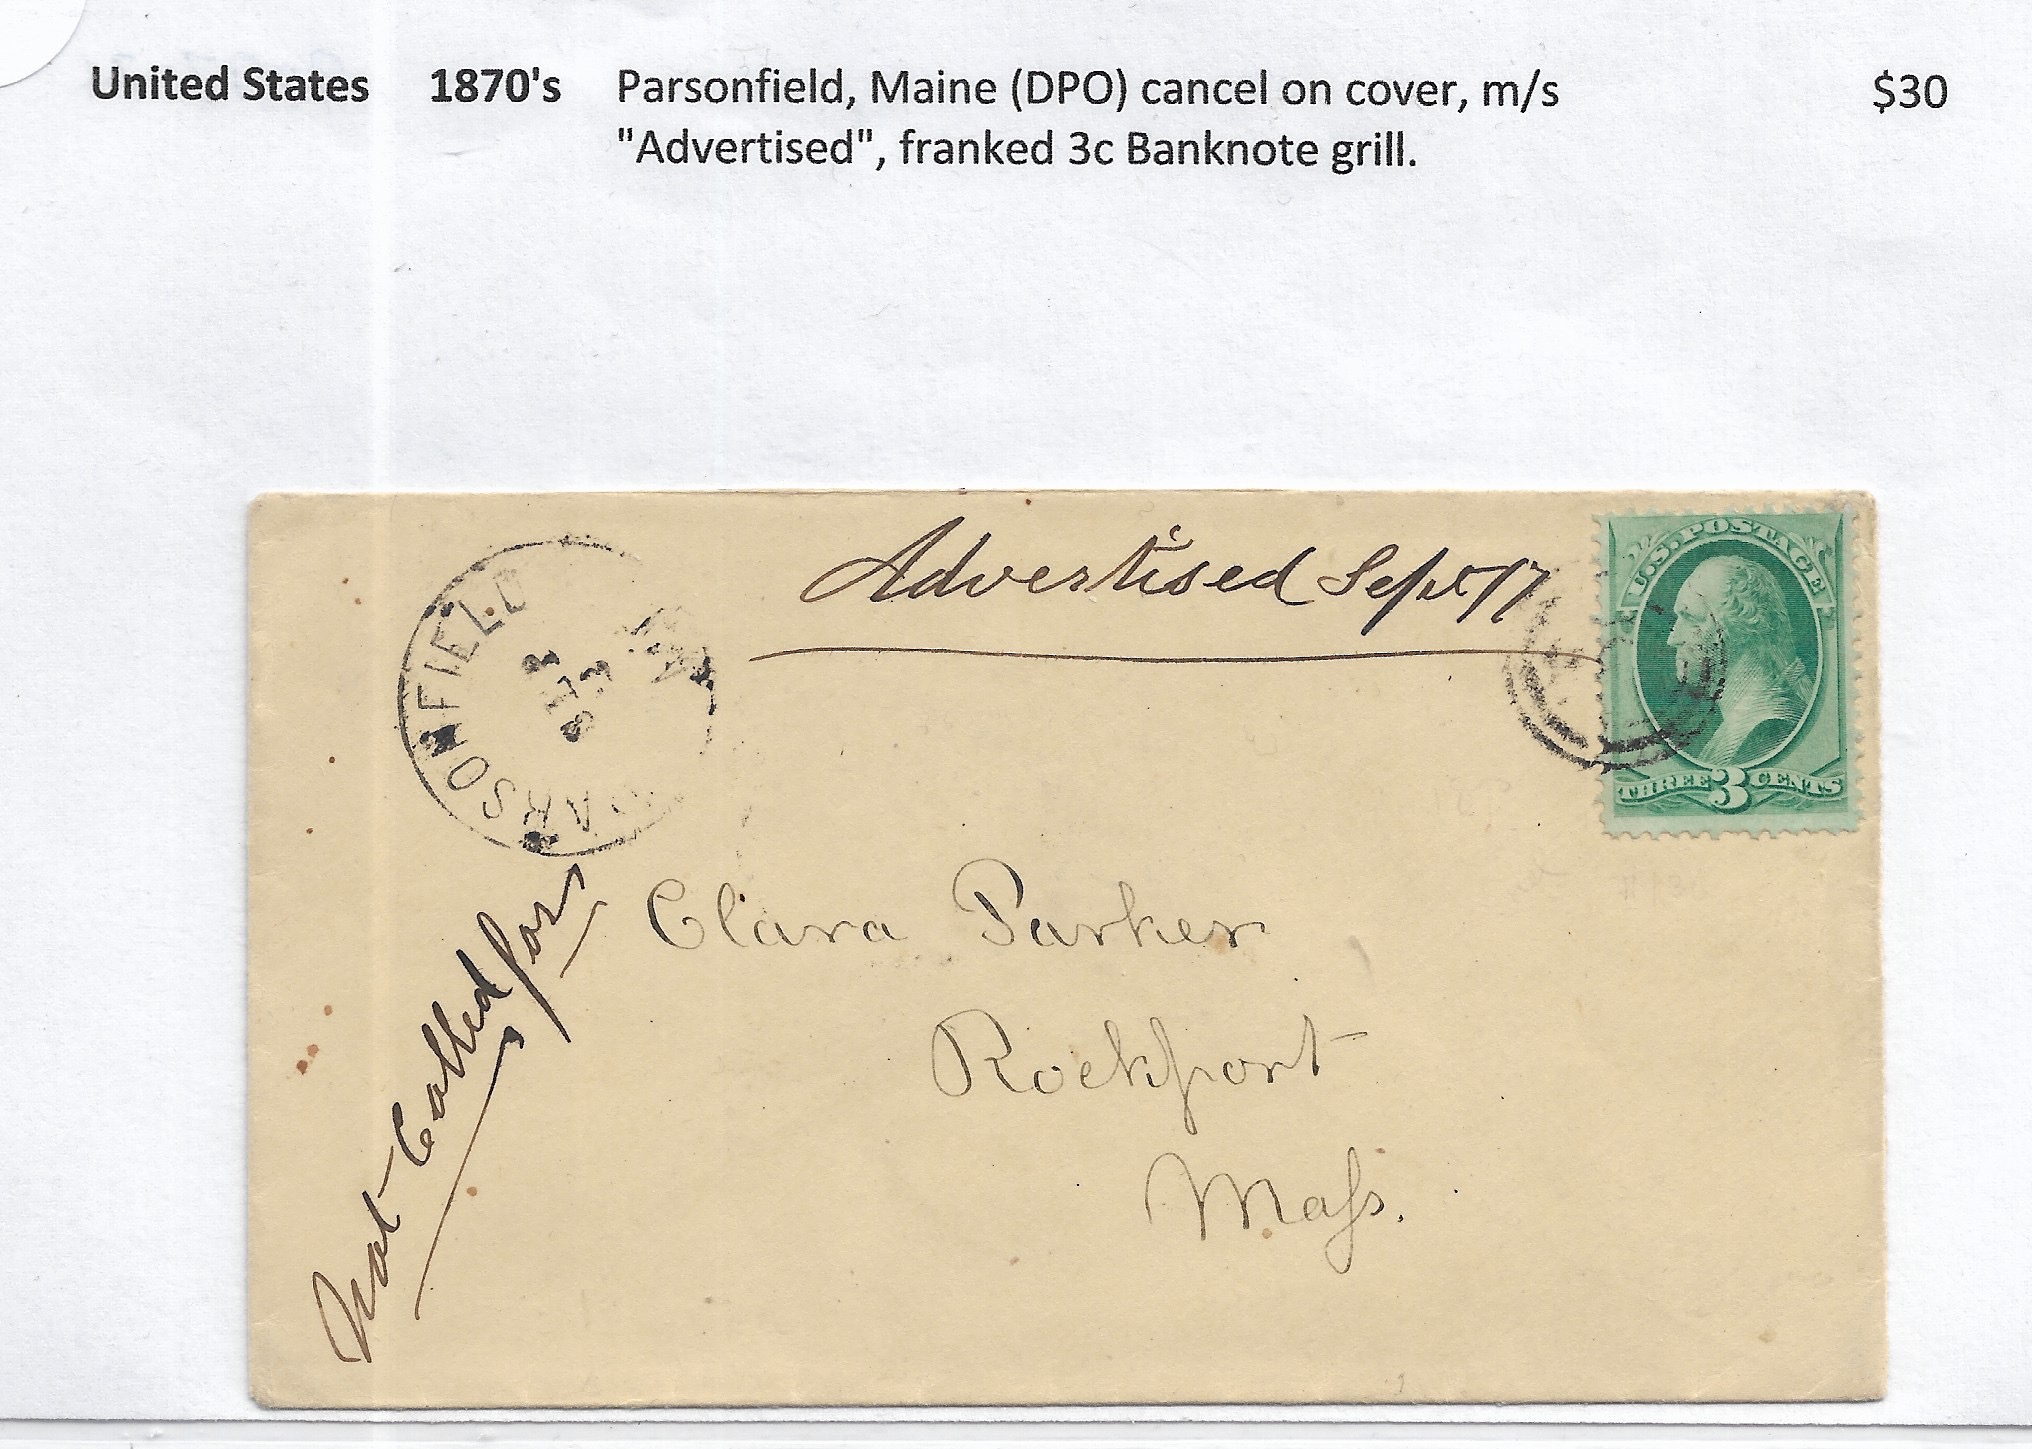 United States 1870's Parsonfield, Maine (DPO) cancel on cover, m/s $30
"Advertised", franked 3c Banknote grill.
Advertised Sept 17
U.S. POSTAGE
THREE 3 CENTS
PARSONFIELD
SEP
Not Called for
Clara Parker
Rockport
Mass.